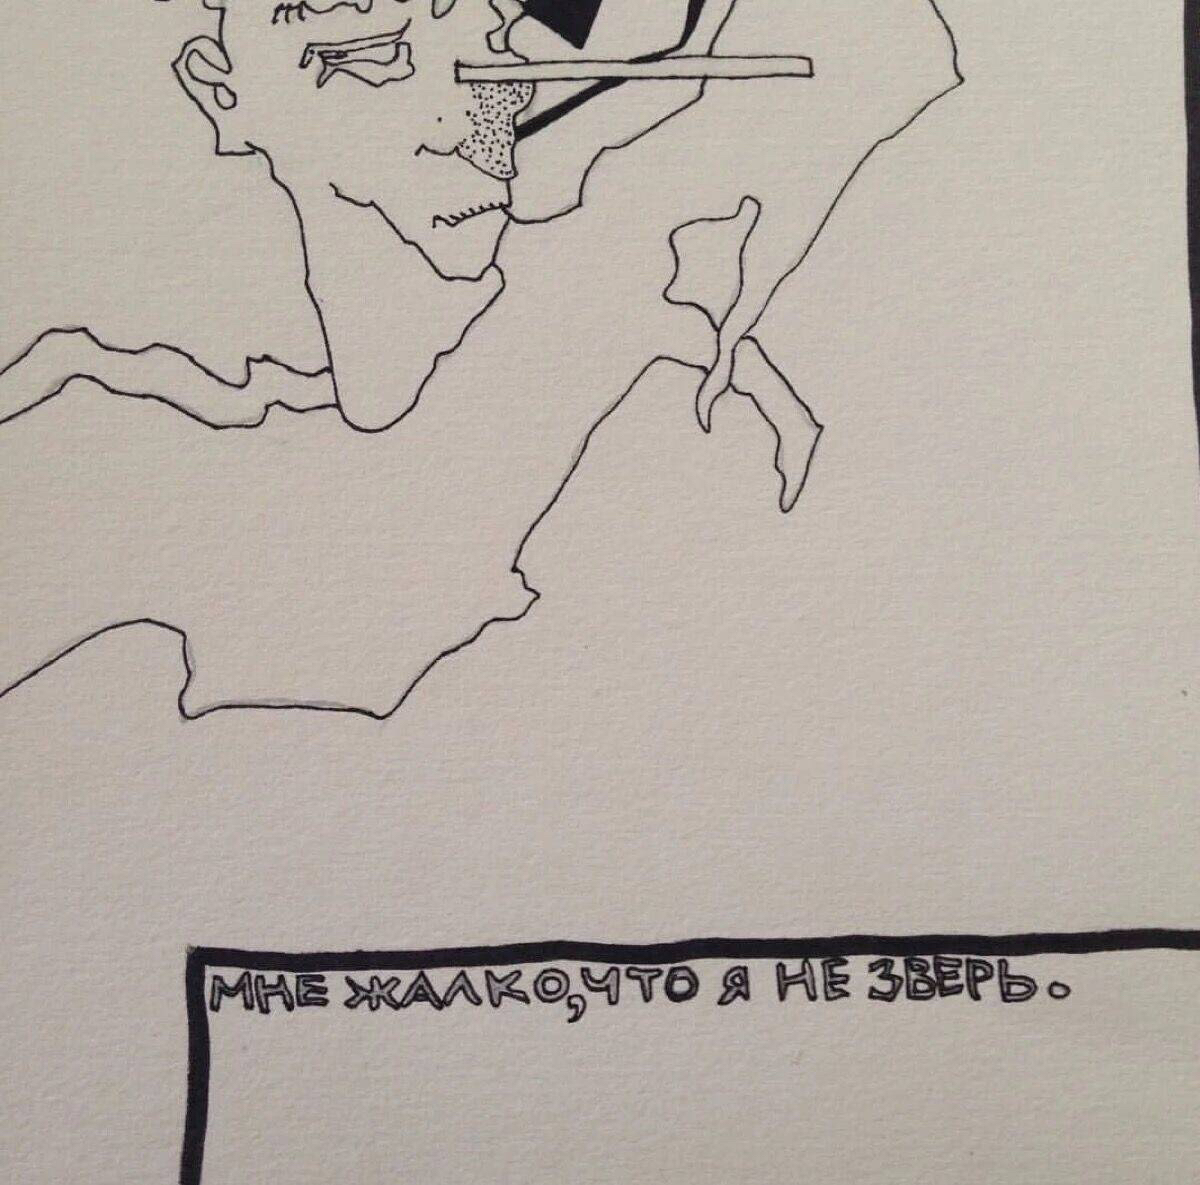 МНЕ ЖАЛКО, ЧТО Я НЕ ЗВЕРЬ.